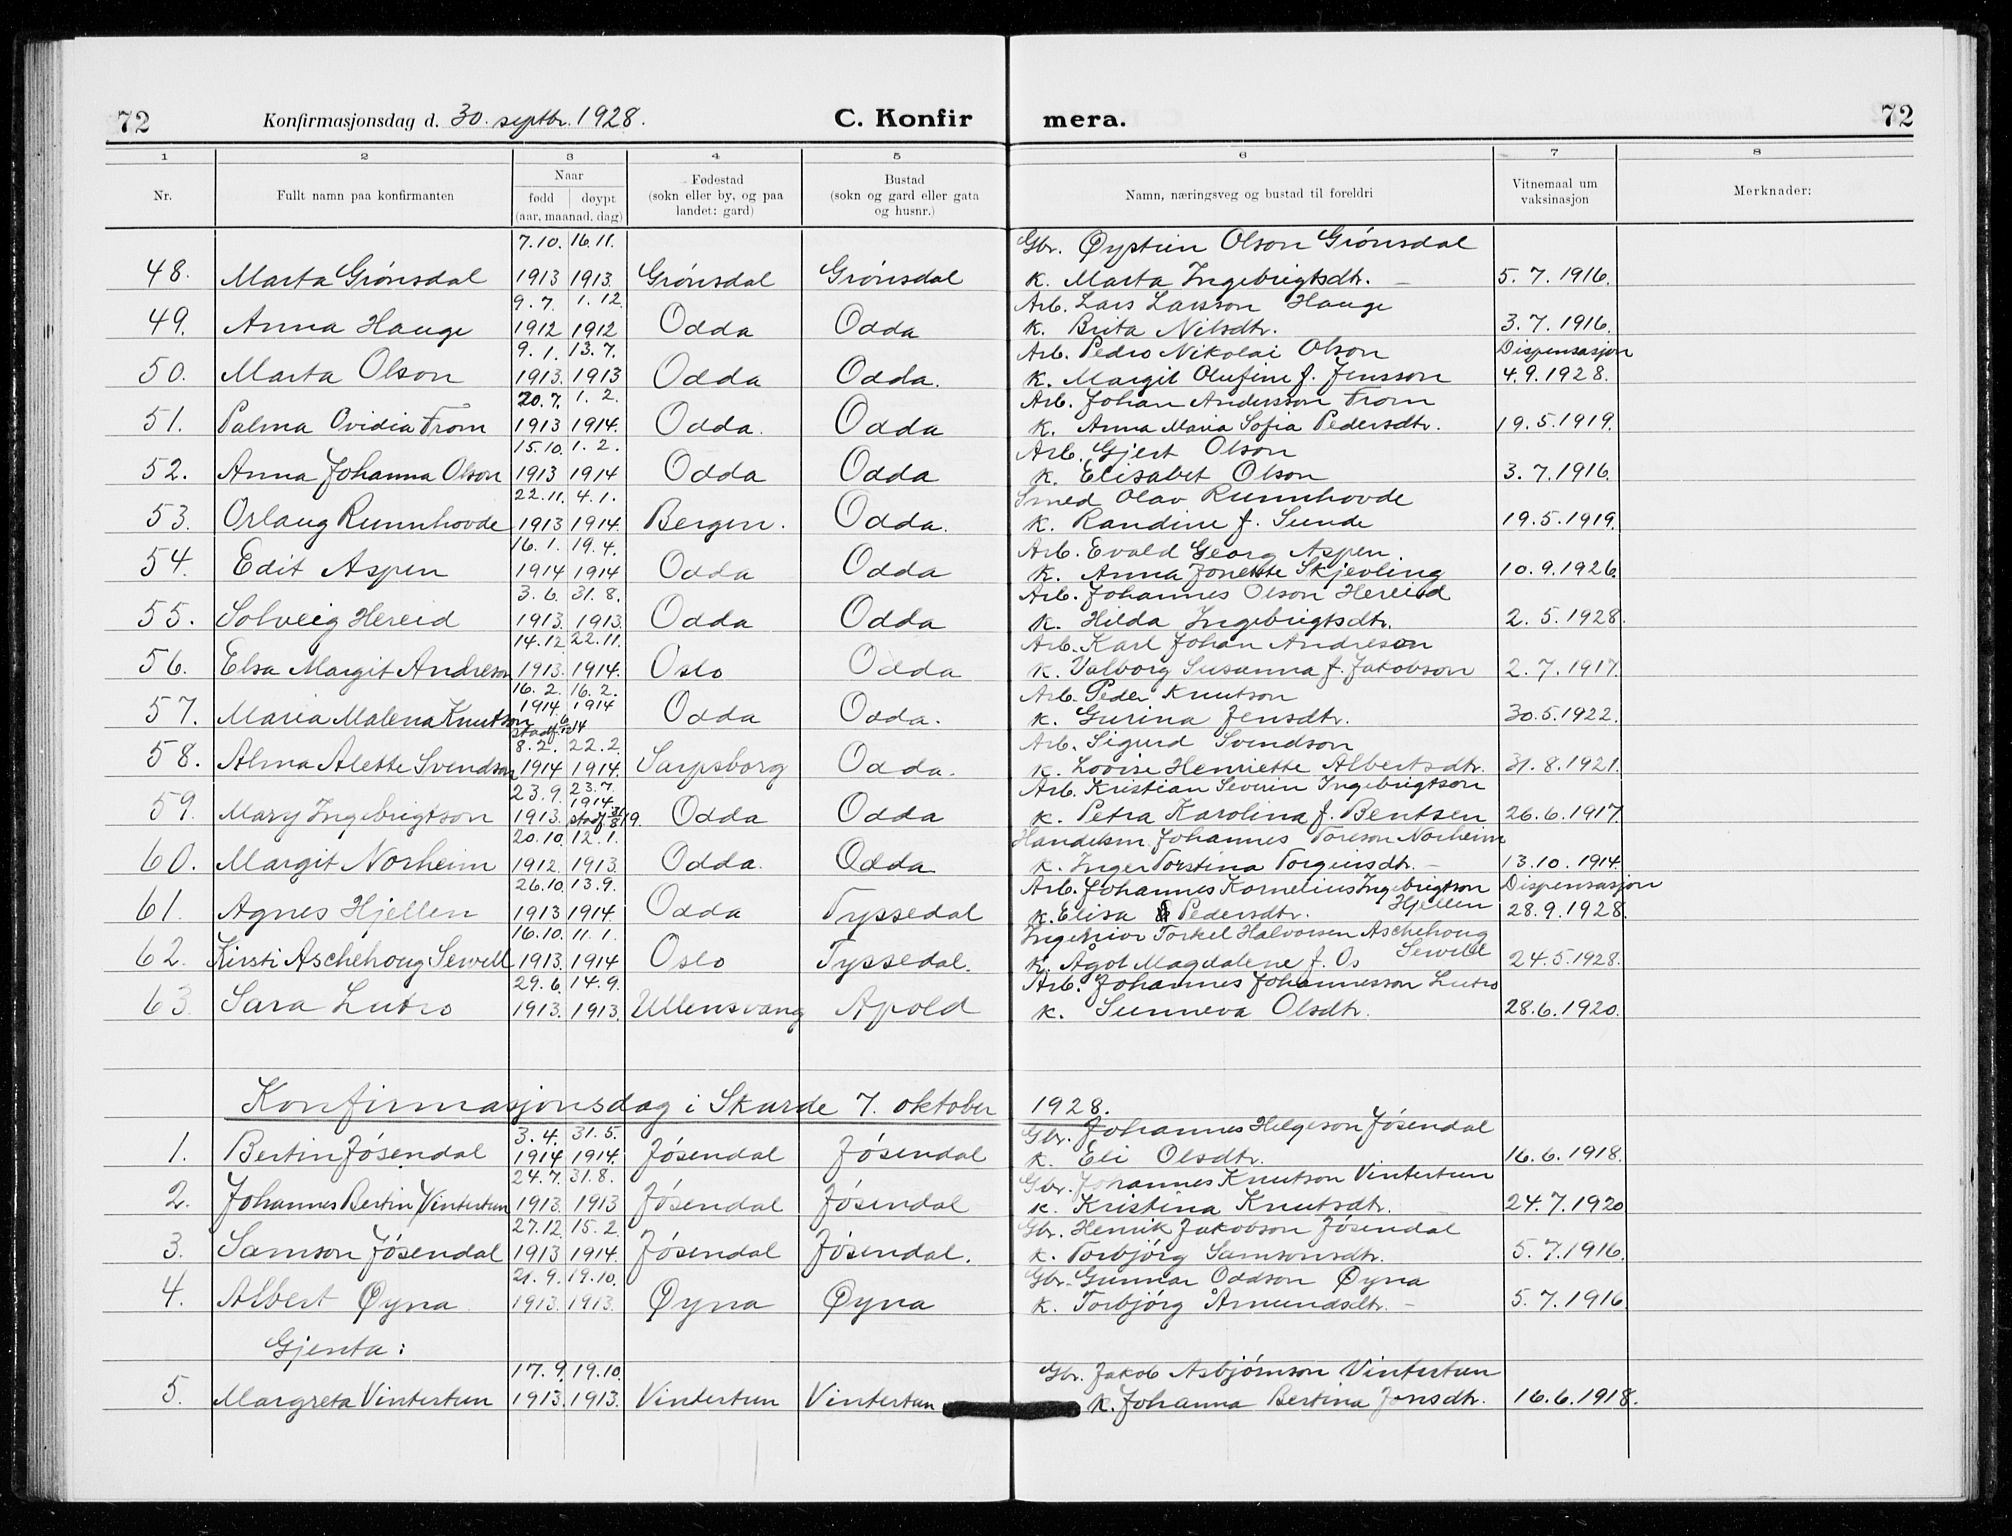 72 Konfirmasjonsdag d. 30. septbr. 1928. C. Konfir mera. 72
1 2 3 4 5 6 7 8
Nr. Fullt namn paa konfirmanten Naar fødd døypt (aar, maanad, dag) Fødestad (sokn eller by, og paa landet: gard) Bustad (sokn og gard eller gata og husnr.) Namn, næringsveg og bustad til foreldri Vitnemaal um vaksinasjon Merknader:
7.10. 16.11. Gbr. Øystein Olson Grónsdal
48. Marta Grónsdal 1913 1913. Grónsdal Grónsdal K. Marta Ingebrigtsdtr. 5.7.1916.
9.7. 1.12. Arb. Lars Larsson Hauge
49. Anna Hauge 1912 1912 Odda Odda K. Brita Nilsdtr. 3.7.1916.
9.1. 13.7. Arb. Pedro Nikolai Olson Dispensasjon
50. Marta Olson 1913. 1913 Odda Odda. K. Margit Olufine f. Jensson 4.9.1928.
20.7. 1.2. Arb. Johan Andersson From
51. Palma Ovidia From 1913 1914. Odda. Odda K. Anna Maria Sofia Pedersdtr. 19.5.1919.
15.10. 1.2. Arb. Gjert Olson
52. Anna Johanna Olson 1913 1914 Odda Odda K. Elisabet Olson 3.7.1916.
22.11. 4.1. Smed Olav Runnhovde
53. Orlaug Runnhovde 1913 1914. Bergen. Odda. K. Randine f. Sunde 19.5.1919.
16.1. 19.4. Arb. Evald Georg Aspen.
54. Edit Aspen 1914 1914 Odda Odda K. Anna Jonette Skjevling 10.9.1926.
3.6. 31.8. Arb. Johannes Olson Hereid
55. Solveig Hereid 1913. 1913. Odda Odda K. Hilda Ingebrigtsdtr. 2.5.1928.
14.12. 22.11. Arb. Karl Johan Andreson
56. Elsa Margit Andreson 1913. 1914. Oslo Odda K. Valborg Susanna f. Jakobson 2.7.1917.
16.2. 16.2. Arb. Peder Knutson
57. Maria Malena Knutson 1914. 1914 Odda Odda. K. Gurina Jensdtr. 30.5.1922.
8.2. 22.2. Arb. Sigurd Svendson
58. Alma Alette Svendson 1914 1914. Sarpsborg Odda. K. Lovise Henriette Albertsdtr. 31.8.1921.
23.9. 23.7. 1914 Arb. Kristian Severin Ingebrigtson
59. Mary Ingebrigtson 1913. Odda Odda K. Petra Karolina f. Bentsen 26.6.1917.
20.10. 12.1. Handelsm. Johannes Toreson Norheim
60. Margit Norheim 1912. 1913. Odda. Odda K. Inger Torstina Torgeirsdtr. 13.10.1914.
26.10. 13.9. Arb. Johannes Kornelius Ingebrigtson Dispensasjon
61. Agnes Hjellen 1913 1914. Odda Tyssedal K. Elisa Pedersdtr. Hjellen 28.9.1928.
16.10. 11.1. Ingeniør Torkel Halvorsen Aschehoug
62. Kirsti Aschehoug Sewell 1913. 1914 Oslo Tyssedal. K. Ågot Magdalene f. Os Sewell 24.5.1928.
29.6. 14.9. Arb. Johannes Johannesson Lutro
63. Sara Lutro 1913. 1913. Ullensvang Apold K. Sunneva Olsdtr. 28.6.1920.
Konfirmasjonsdag i Skarde 7. oktober 1928.
3.4. 31.5. Gbr. Johannes Helgeson Jósendal
1. Bertin Jósendal 1914 1914. Jósendal Jósendal K. Eli Olsdtr. 16.6.1918.
24.7. 31.8. Gbr. Johannes Knutson Vintertun
2. Johannes Bertin Vintertun 1913. 1913 Jósendal Jósendal K. Kristina Knutsdtr. 24.7.1920
27.12. 15.2. Gbr. Henrik Jakobson Jósendal
3. Samson Jósendal 1913 1914. Jósendal Jósendal. K. Torbjórg Samsonsdtr. 5.7.1916.
21.9. 19.10. Gbr. Gunnar Oddson Øyna
4. Albert Øyna 1913. 1913. Øyna Øyna K. Torbjórg Åmundsdtr. 5.7.1916.
Gjenta:
17.9. 19.10. Gbr. Jakob Asbjórnson Vintertun
5. Margreta Vintertun 1913. 1913. Vintertun Vintertun K. Johanna Bertina Jonsdtr. 16.6.1918.